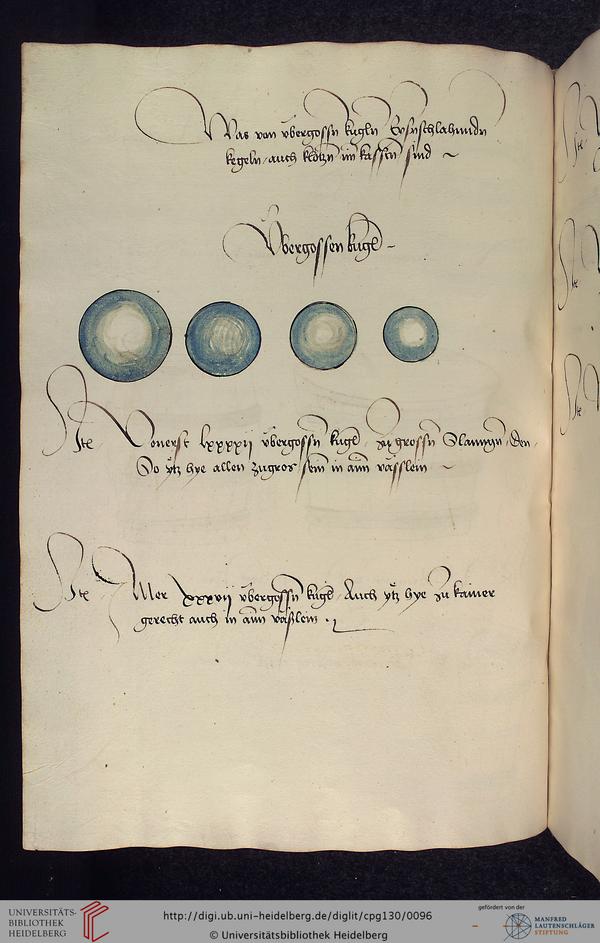 Was von vbergossn kugln Eysnschlahundn
kegeln auch klotzn in kassten sind ~
Vbergossen kugl ~
Ite Vonerst lxxxxij vbergossn kugl zu grossn Slanngn den
So ytz hye allen zu gros sein in aim vässlein ~
Ite Mer xxxvij vbergossn kugl Auch ytz hye zu kainer
gerecht auch in aim väßlein
UNIVERSITÄTS-
BIBLIOTHEK
HEIDELBERG
http://digi.ub.uni-heidelberg.de/diglit/cpg130/0096
© Universitätsbibliothek Heidelberg
gefördert von der
MANFRED
LAUTENSCHLÄGER
STIFTUNG